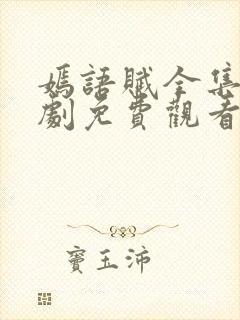 嫣語賦全集
劇免費觀看
竇玉沛